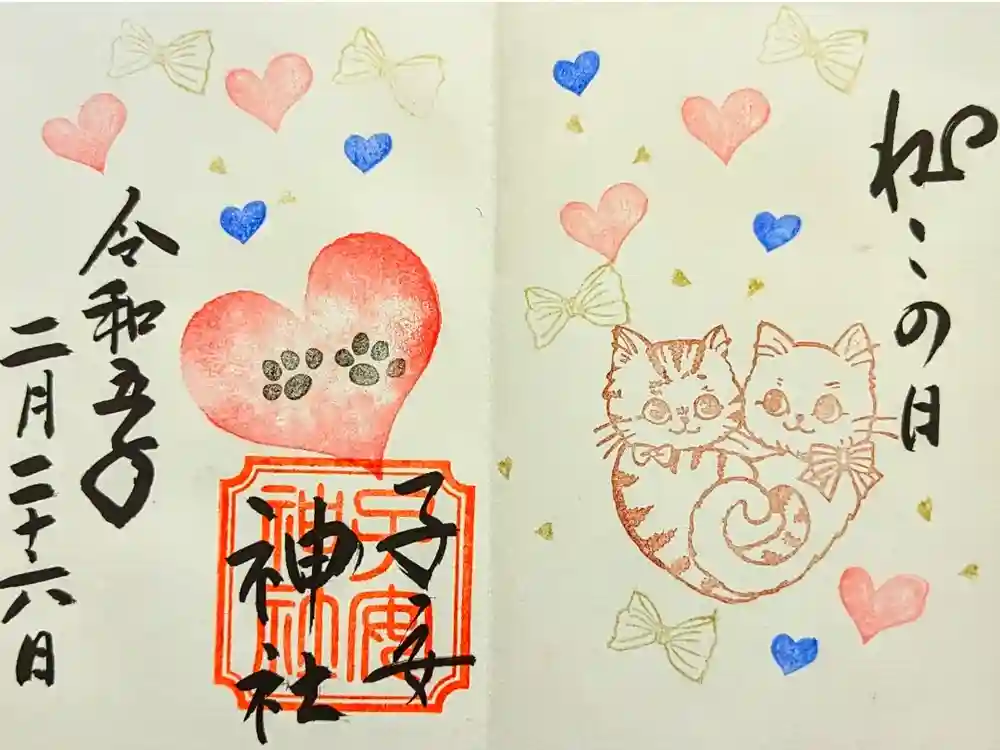 ねこの日
子安
神社
子安
神社
令和五年
二月二十六日